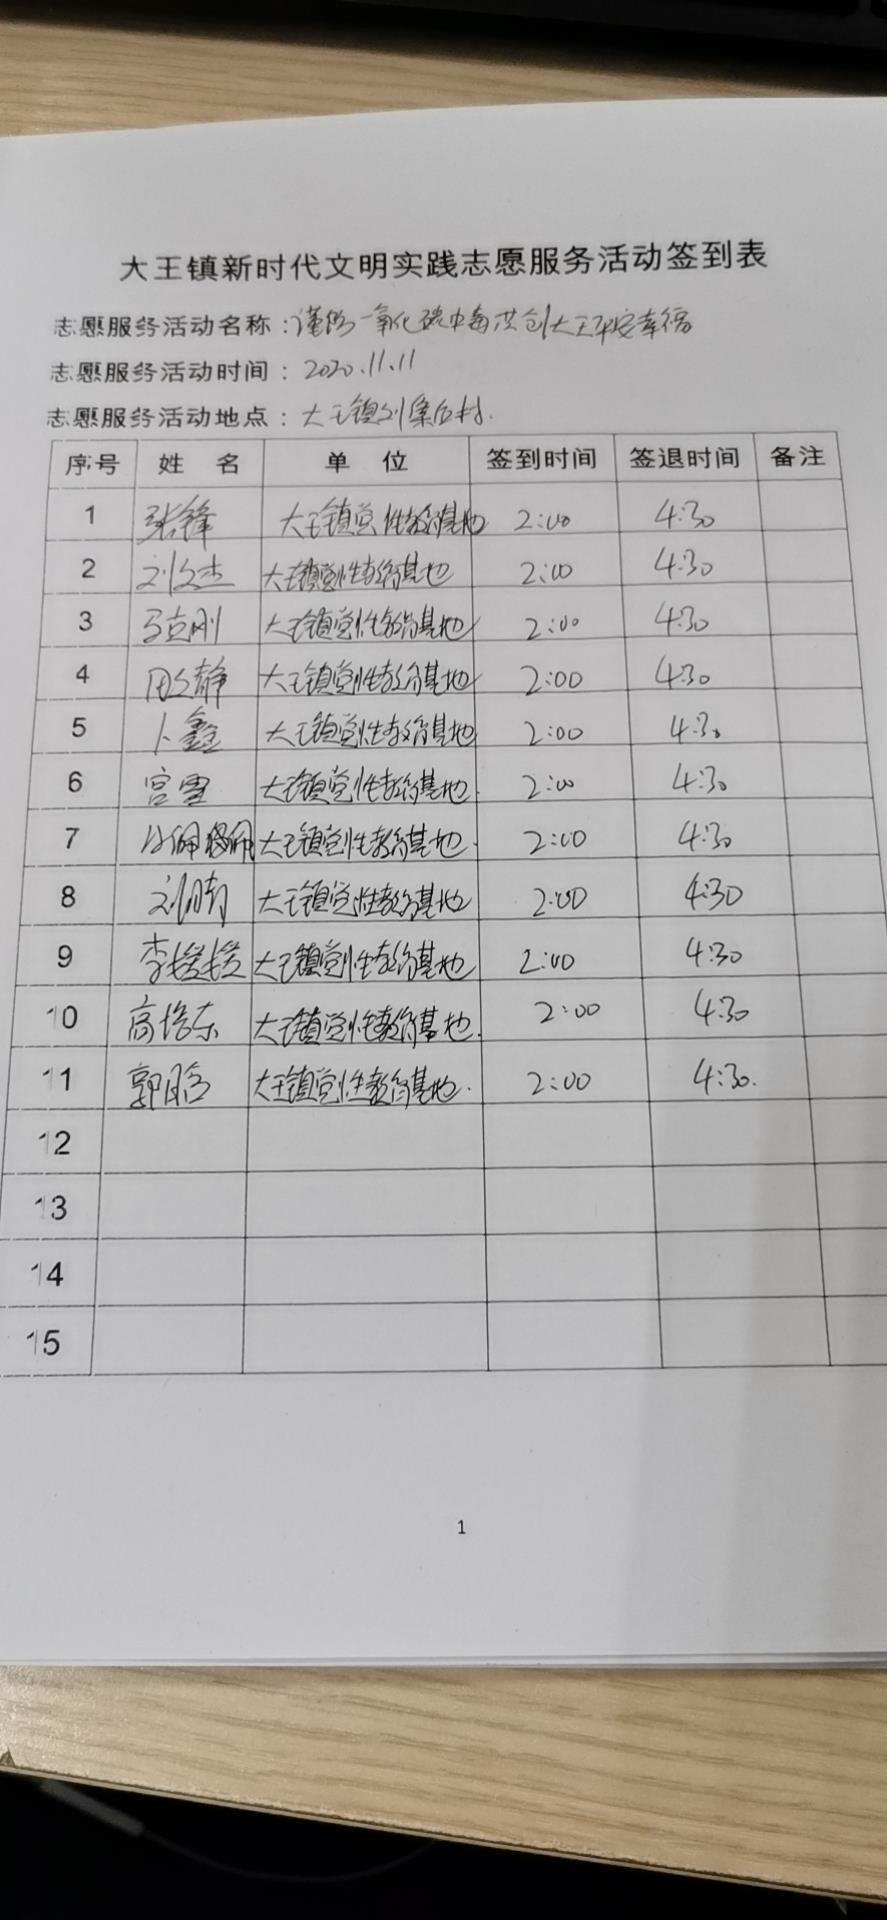 大王镇新时代文明实践志愿服务活动签到表
志愿服务活动名称：谨防一氧化碳中毒共创大王平安幸福
志愿服务活动时间：2020.11.11
志愿服务活动地点：大王镇刘集后村.
序号 姓 名 单 位 签到时间 签退时间 备注
1 张锋 大王镇党性教育基地 2:00 4:30
2 刘文杰 大王镇党性教育基地 2:00 4:30
3 马克刚 大王镇党性教育基地 2:00 4:30
4 田文静 大王镇党性教育基地 2:00 4:30
5 卜鑫 大王镇党性教育基地 2:00 4:30
6 宫雪 大王镇党性教育基地. 2:00 4:30
7 大王镇党性教育基地. 2:00 4:30
8 大王镇党性教育基地 2:00 4:30
9 李媛媛 大王镇党性教育基地 2:00 4:30
10 高培东 大王镇党性教育基地. 2:00 4:30
11 郭晗 大王镇党性教育基地. 2:00 4:30.
12
13
14
15
1